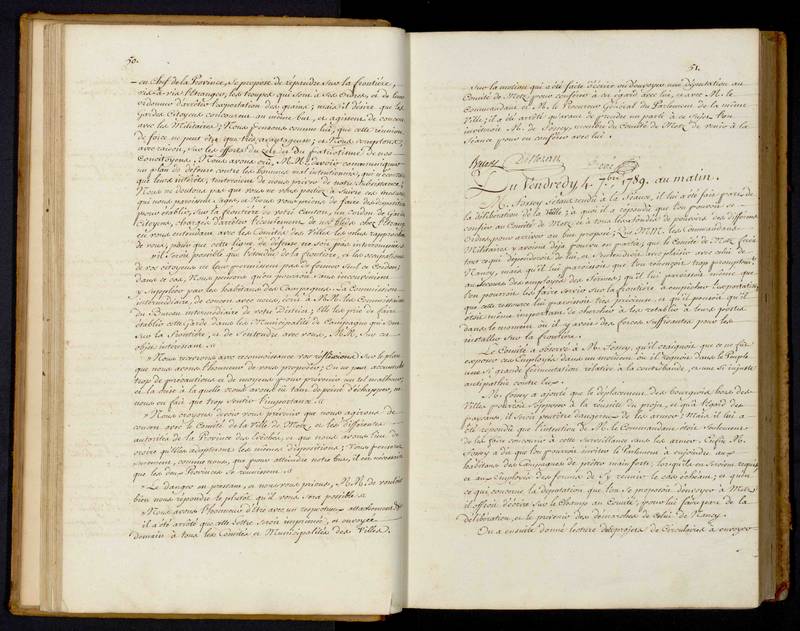 50.
en Chef de la Province, se propose de répandre sur la frontière,
vis-à-vis l'étranger, les troupes qui sont à ses ordres, et de leur
ordonner d'arrêter l'exportation des grains; mais il désire que les
Gardes Citoyennes concourent au même but, et agissent de concert
avec les Militaires; Nous pensons comme lui, que cette réunion
de force ne peut être que très avantageuse; et Nous comptons,
avec raison, sur les efforts du zèle et du patriotisme de nos
Concitoyens. Nous avons cru, MM, devoir communiquer
un plan de défense contre les hommes mal intentionnés, qui n'écoutent
que leurs intérêts, tenteroient de nous priver de notre subsistance;
Nous ne doutons pas que vous ne vous portiez à suivre ces mesures
qui nous paroissent sages, et Nous vous prions de faire des dispositions
pour établir, sur la frontière de votre Canton, un Cordon de Gardes
Citoyens, chargés d'arrêter l'écoulement de nos bleds chez l'étranger
en vous entendant avec les Comités des Villes les plus rapprochées
de vous, pour que cette ligne de défense ne soit pas interrompue.
" Il seroit possible que l'étendue de la frontière, et les occupations
de vos citoyens ne leur permissent pas de former seul ce Cordon;
dans ce cas, Nous pensons qu'on pourroit sans inconvénient
y suppléer par les habitans des Campagnes. La Commission
intermédiaire, de concert avec nous, écrit à MM. les Commissaires
du Bureau intermédiaire de votre District; Elle les prie de faire
établir cette Garde dans les Municipalités de Campagne qui sont
sur la frontière, et de s'entendre avec vous, MM, sur cet
objet intéressant. "
" Nous recevrons avec reconnoissance vos réflexions sur le plan
que nous avons l'honneur de vous proposer; On ne peut accumuler
trop de précautions et de moyens pour prévenir un tel malheur,
et la crise à la quelle nous avons eu tant de peine d'échapper, ne
nous en fait que trop sentir l'importance. "
" Nous croyons devoir vous prévenir que nous agirons de
concert avec le Comité de la Ville de Metz, et les différentes
autorités de la Province des Evêchés, et que nous avons lieu de
croire qu'elles adopteront les mêmes dispositions; Vous penserez
sûrement, comme nous, que pour atteindre notre but, il est nécessaire
que les deux Provinces se réunissent. "
Le danger est pressant, et nous vous prions, MM. de vouloir
bien nous répondre le plutôt qu'il vous sera possible. "
" Nous avons l'honneur d'être avec un respectueux attachement &c
il a été arrêté que cette lettre seroit imprimée, et envoyée
demain à tous les Comités et Municipalités des Villes.
51.
Sur la motion qui a été faite d'écrire ou d'envoyer une députation au
Comité de Metz pour conférer à cet égard avec lui, et avec M. le
Commandant et M. le Procureur Général du Parlement de la même
Ville; il a été arrêté qu'avant de prendre un parti à ce sujet l'on
inviteroit M. de Foissey, membre du Comité de Metz de venir à la
Séance pour en conférer avec lui.
Du Vendredy 4. 7.bre 1789. au matin.
M. Foissey s'étant rendu à la Séance, il lui a été fait part de
la délibération de la Veille; à quoi il a répondu que l'on pouvoit se
confier au Comité de Metz et à tous les soldats de police des différens
Ordres, pour arriver au but proposé; que MM. les Commandans
Militaires y avoient déjà pourvu en partie; que le Comité de Metz feroit
tout ce qui dépendroit de lui, et s'entendroit avec plaisir avec celui de
Nancy, mais qu'il lui paroissoit que l'on renonçoit trop promptement
au secours des employés des fermes; qu'il lui paroissoit même que
l'on pourroit les faire servir sur la frontière à empêcher l'exportation,
que cette ressource lui paroissoit très précieuse, et qu'il pensoit qu'il
étoit même important de chercher à les rétablir à leurs postes
dans le moment où il y avoit des forces suffisantes pour les
installer sur la frontière.
Le Comité a observé à M. Foissey, qu'il craignoit que ce fut
exposer ces Employés dans un moment où il régnoit dans le Peuple
une si grande fermentation relative à la contrebande, et une si injuste
antipathie contre eux.
M. Foissey a ajouté que le déplacement des bourgeois hors des
Villes pouvoit s'opposer à la réussite du projet, et qu'à l'égard des
paysans, il seroit peut-être dangereux de les armer; Mais il lui a
été répondu que l'intention de M. le Commandant étoit seulement
de les faire concourir à cette surveillance sans les armer. Enfin M.
Foissey a dit que l'on pouvoit inviter le Parlement à enjoindre aux
habitans des Campagnes de prêter main forte, lorsqu'ils en seroient requis
et aux Employés des fermes de s'y réunir le cas échéant; et qu'en
ce qui concerne la députation que l'on se proposoit d'envoyer à Metz,
il offroit d'écrire sur le Champ au Comité, pour lui faire part de la
délibération, et le prévenir des démarches de celui de Nancy.
On a ensuite donné lecture des projets de Circulaires à envoyer